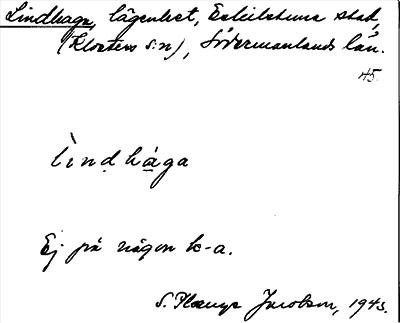 Lindhaga, lägenhet, Eskilstuna stad,
(Klosters s:n), Södermanlands län.
45.
lìndhága
Ej på någon k-a.
S. Jacobson, 1943.